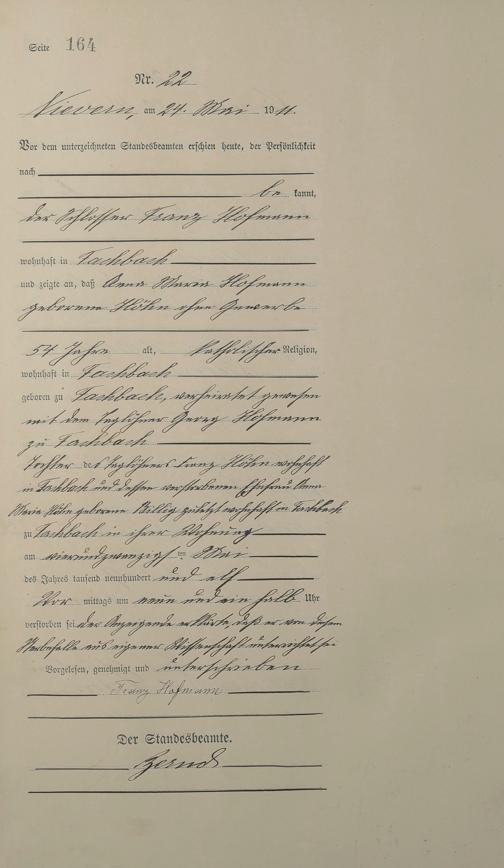 Seite 164
Nr. 22
Nievern, am 24. Mai 1911.
Vor dem unterzeichneten Standesbeamten erschien heute, der Persönlichkeit
nach
be kannt,
der Schlosser Franz Hofmann
wohnhaft in Fachbach
und zeigte an, daß Anna Maria Hofmann
geborene Höhn ohne Gewerbe
54 Jahre alt, katholischer Religion,
wohnhaft in Fachbach
geboren zu Fachbach, verheiratet gewesen
mit dem Taglöhner Georg Hofmann
zu Fachbach
Tochter des Taglöhners Franz Höhn wohnhaft
in Fachbach und dessen verstorbenen Ehefrau Anna
Maria Höhn geborene Willig zuletzt wohnhaft in Fachbach
zu Fachbach in ihrer Wohnung
am vierundzwanzigsten Mai
des Jahres tausend neunhundert und elf
Vor mittags um neun und ein halb Uhr
verstorben sei. Der Anzeigende erklärte, daß er von diesem
Sterbefalle aus eigener Wissenschaft unterrichtet sei
Vorgelesen, genehmigt und unterschrieben
Franz Hofmann
Der Standesbeamte.